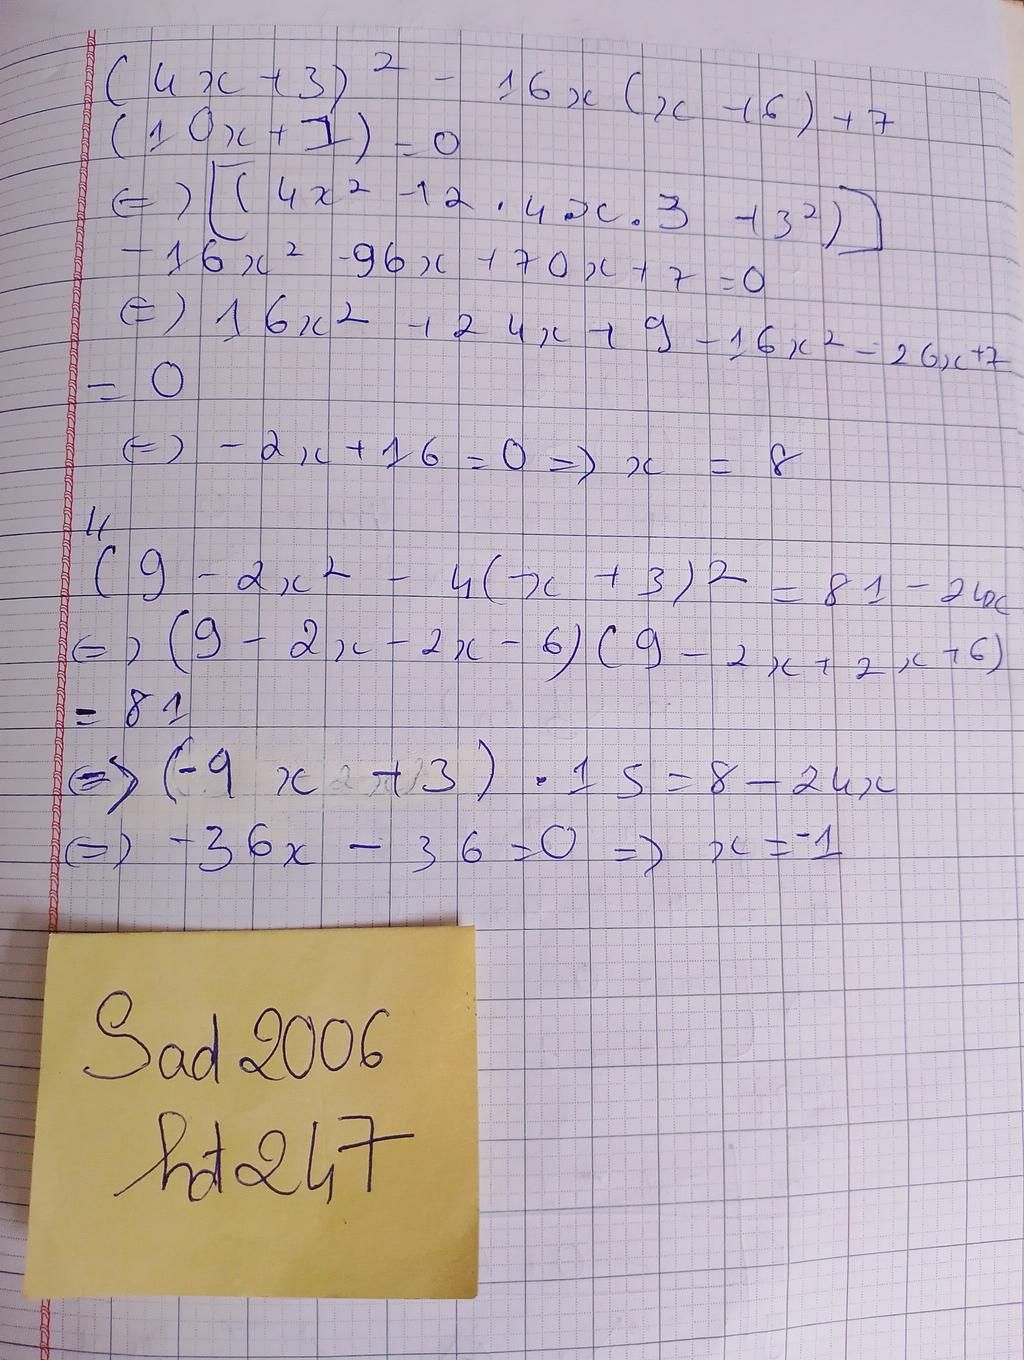 (4x+3)² - 16x(x+6)+7
(10x+1)=0
⇔ [(4x² +2.4x.3 +3²)]
-16x² -96x +70x+7=0
⇔ 16x² +24x+9-16x²-26x+7
= 0
⇔ -2x+16=0 => x = 8
4
(9-2x² - 4(x+3)² = 81-24x
⇔ (9-2x-2x-6)(9-2x+2x+6)
= 81
⇔ (-9x+3).15=8-24x
⇔ -36x - 36=0 => x=-1
Sad2006
hd247